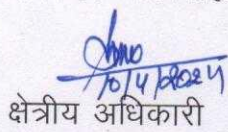 10/4/2024
क्षेत्रीय अधिकारी